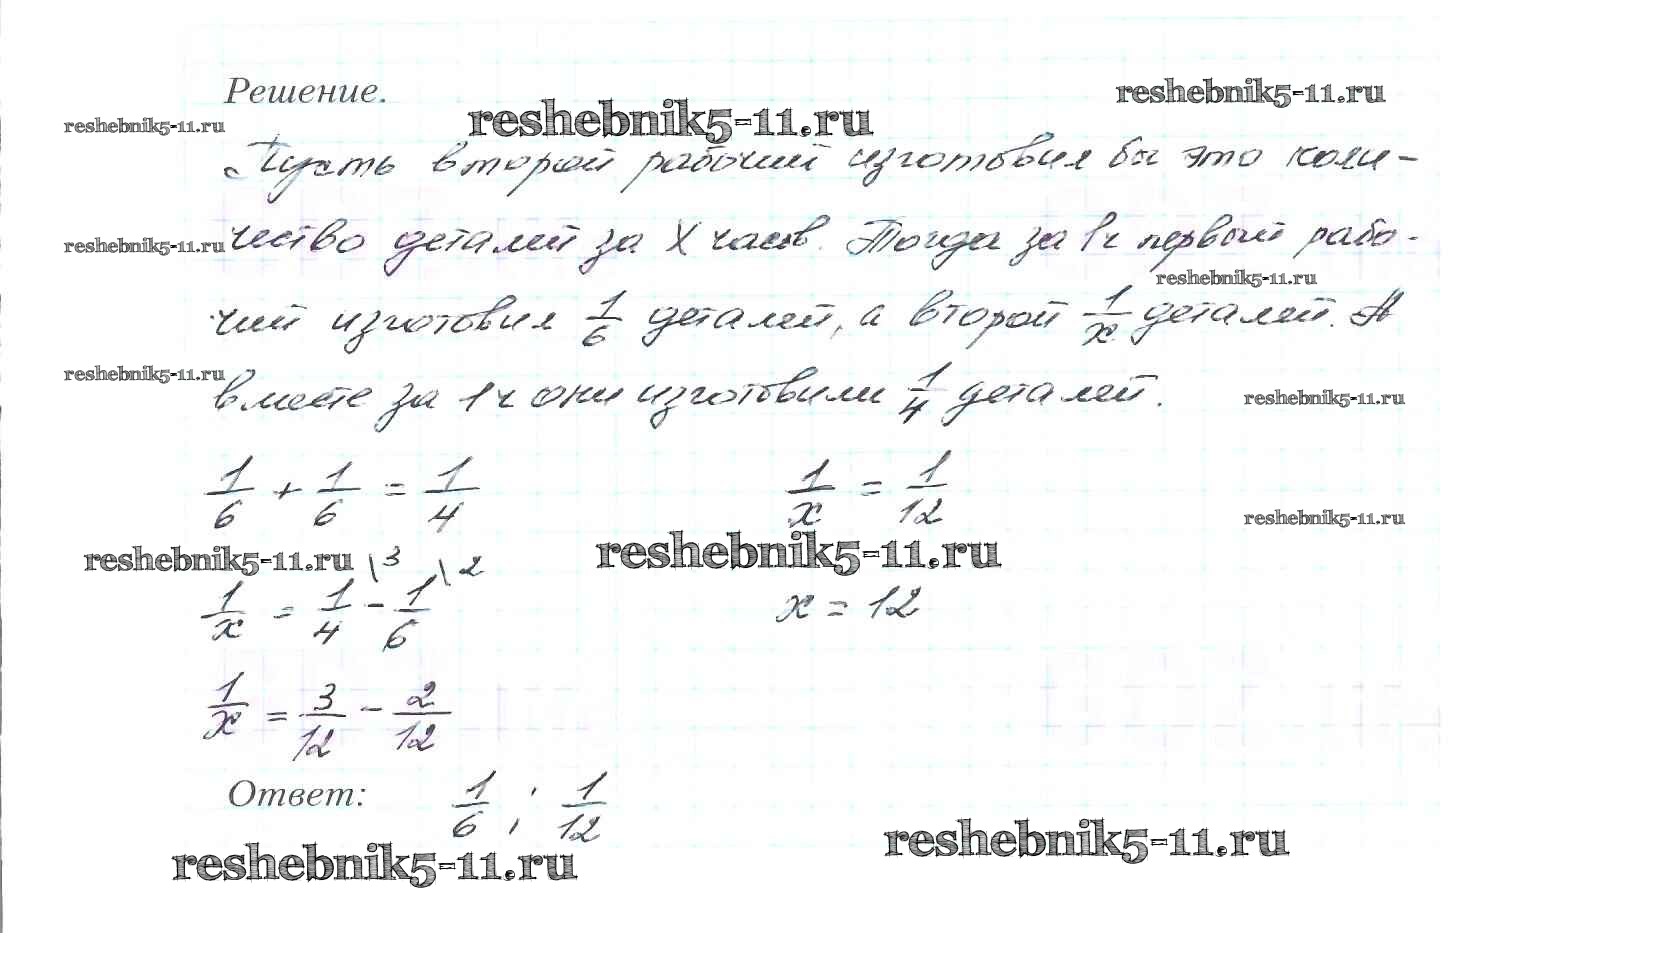 Решение.
reshebnik5-11.ru
reshebnik5-11.ru
reshebnik5-11.ru
Пусть второй рабочий изготовил бы это коли-
reshebnik5-11.ru
чество деталей за x часов. Тогда за 1ч первый рабо-
reshebnik5-11.ru
чий изготовил 1/6 деталей, а второй 1/x деталей. А
reshebnik5-11.ru
вместе за 1ч они изготовили 1/4 деталей.
reshebnik5-11.ru
1/6 + 1/6 = 1/4
1/x = 1/12
reshebnik5-11.ru
reshebnik5-11.ru
reshebnik5-11.ru
1/x = 1/4 \3 - 1/6 \2
x = 12
1/x = 3/12 - 2/12
Ответ: 1/6 ; 1/12
reshebnik5-11.ru
reshebnik5-11.ru